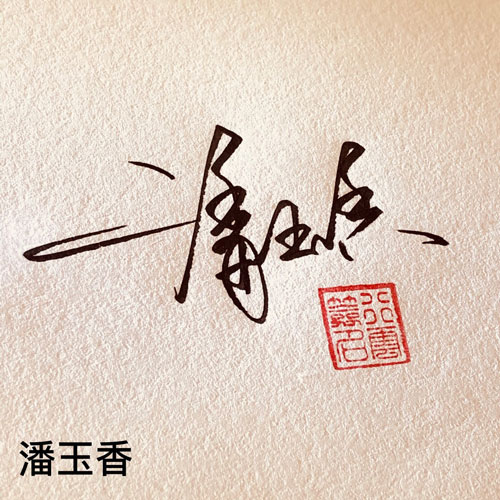 潘玉香
潘玉香